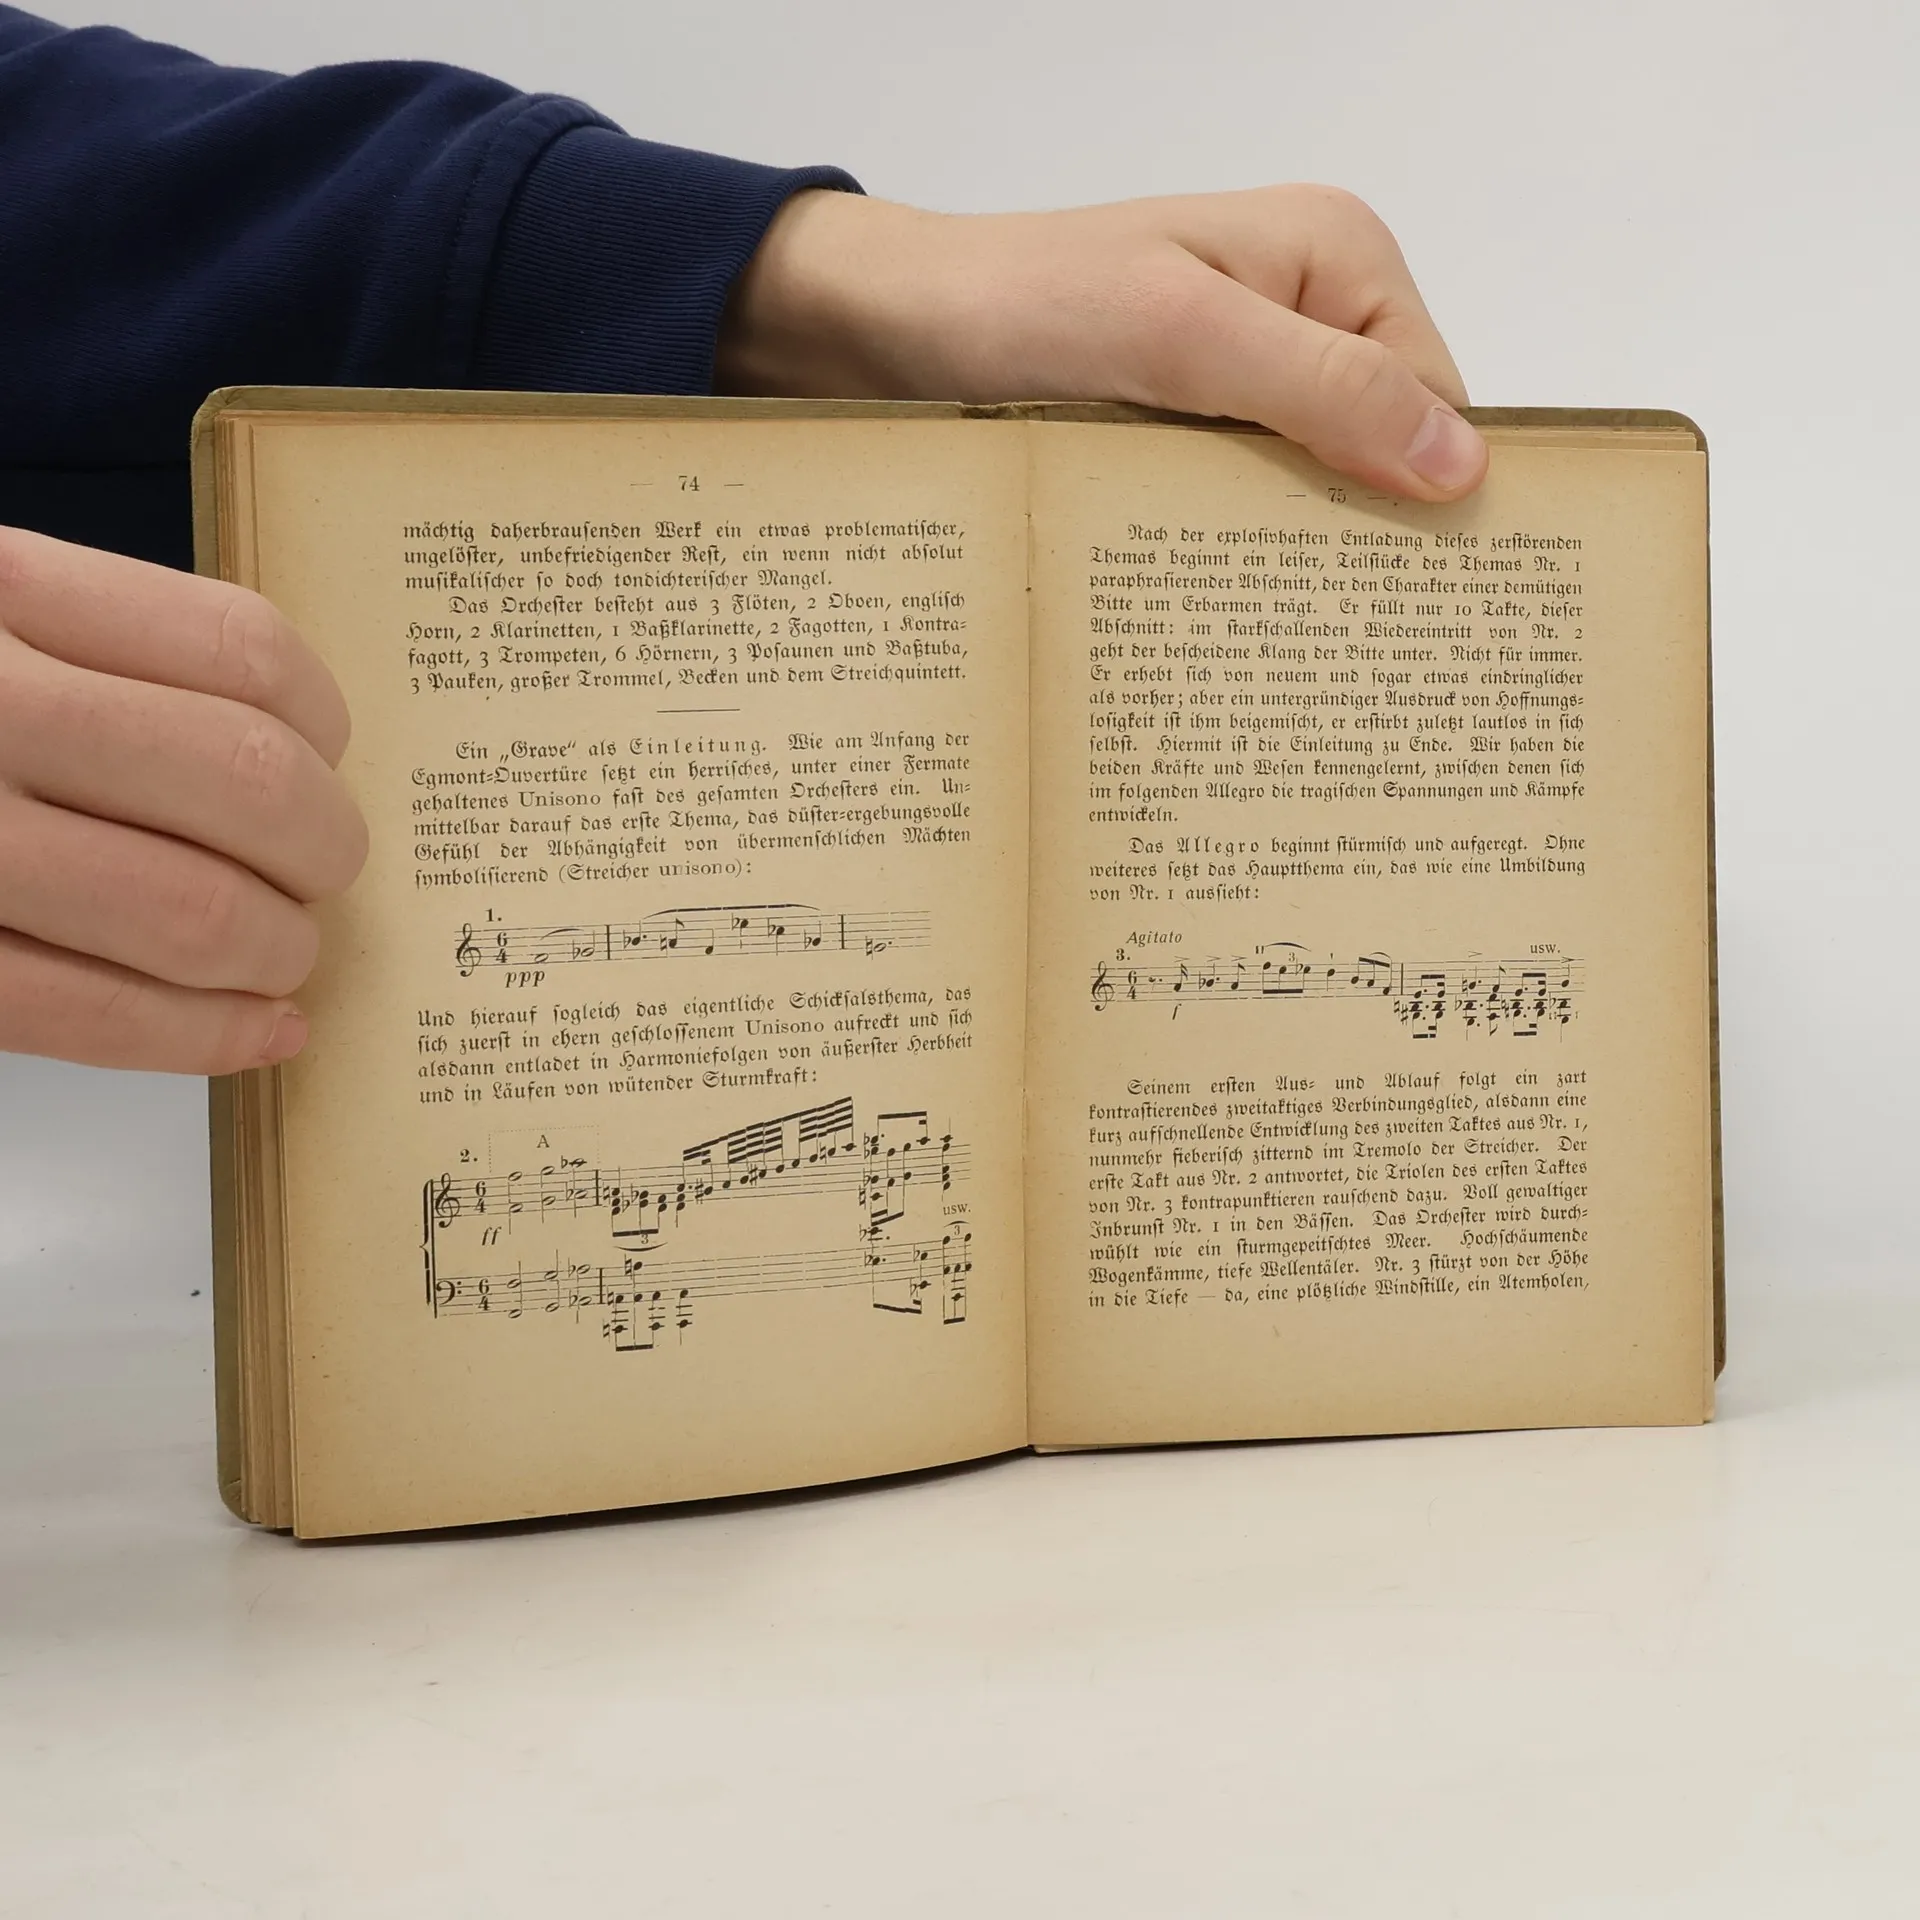 — 74 —
mächtig daherbrausenden Werk ein etwas problematischer,
ungelöster, unbefriedigender Rest, ein wenn nicht absolut
musikalischer so doch tondichterischer Mangel.
Das Orchester besteht aus 3 Flöten, 2 Oboen, englisch
Horn, 2 Klarinetten, 1 Baßklarinette, 2 Fagotten, 1 Kontra-
fagott, 3 Trompeten, 6 Hörnern, 3 Posaunen und Baßtuba,
3 Pauken, großer Trommel, Becken und dem Streichquintett.
Ein „Grave“ als Einleitung. Wie am Anfang der
Egmont-Ouvertüre setzt ein herrisches, unter einer Fermate
gehaltenes Unisono fast des gesamten Orchesters ein. Un-
mittelbar darauf das erste Thema, das düster-ergebungsvolle
Gefühl der Abhängigkeit von übermenschlichen Mächten
symbolisierend (Streicher unisono):
1.
6
4
ppp
Und hierauf sogleich das eigentliche Schicksalsthema, das
sich zuerst in ehern geschlossenem Unisono aufreckt und sich
alsdann entladet in Harmoniefolgen von äußerster Herbheit
und in Läufen von wütender Sturmkraft:
A
2.
6
4
ff
usw.
3
3
6
4
— 75 —
Nach der explosivhaften Entladung dieses zerstörenden
Themas beginnt ein leiser, Teilstücke des Themas Nr. 1
paraphrasierender Abschnitt, der den Charakter einer demütigen
Bitte um Erbarmen trägt. Er füllt nur 10 Takte, dieser
Abschnitt: im starkschallenden Wiedereintritt von Nr. 2
geht der bescheidene Klang der Bitte unter. Nicht für immer.
Er erhebt sich von neuem und sogar etwas eindringlicher
als vorher; aber ein untergründiger Ausdruck von Hoffnungs-
losigkeit ist ihm beigemischt, er erstirbt zuletzt lautlos in sich
selbst. Hiermit ist die Einleitung zu Ende. Wir haben die
beiden Kräfte und Wesen kennengelernt, zwischen denen sich
im folgenden Allegro die tragischen Spannungen und Kämpfe
entwickeln.
Das Allegro beginnt stürmisch und aufgeregt. Ohne
weiteres setzt das Hauptthema ein, das wie eine Umbildung
von Nr. 1 aussieht:
Agitato
3.
usw.
3
6
4
f
Seinem ersten Aus- und Ablauf folgt ein zart
kontrastierendes zweitaktiges Verbindungsglied, alsdann eine
kurz aufschnellende Entwicklung des zweiten Taktes aus Nr. 1,
nunmehr fieberisch zitternd im Tremolo der Streicher. Der
erste Takt aus Nr. 2 antwortet, die Triolen des ersten Taktes
von Nr. 3 kontrapunktieren rauschend dazu. Voll gewaltiger
Inbrunst Nr. 1 in den Bässen. Das Orchester wird durch-
wühlt wie ein sturmgepeitschtes Meer. Hochschäumende
Wogenkämme, tiefe Wellentäler. Nr. 3 stürzt von der Höhe
in die Tiefe — da, eine plötzliche Windstille, ein Atemholen,